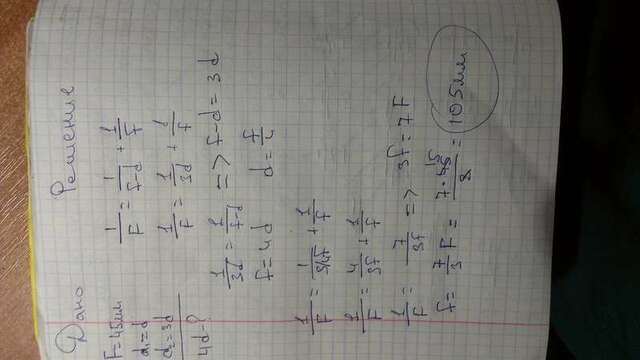 Дано
F=45мм
d₁=d
d₂=3d
4d-?
Решение
1/F = 1/(f-d) + 1/f
1/F = 1/3d + 1/f
1/3d = 1/(f-d) => f-d=3d
f=4d d=f/4
1/F = 1/(3/4f) + 1/f
1/F = 4/3f + 1/f
1/F = 7/3f => 3f=7F
f= 7/3 F = 7·45/3 = 105мм